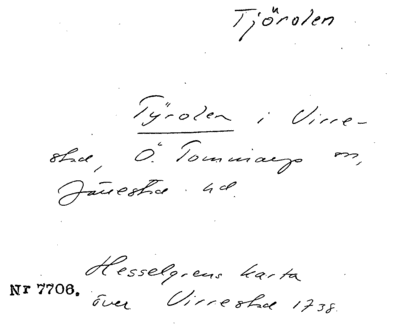 Tjörolen
Tÿrolen i Virre-
stad, Ö. Tommarps sn,
Järrestad hd.
Hesselgrens karta
över Virrestad 1738.
Nr 7706.